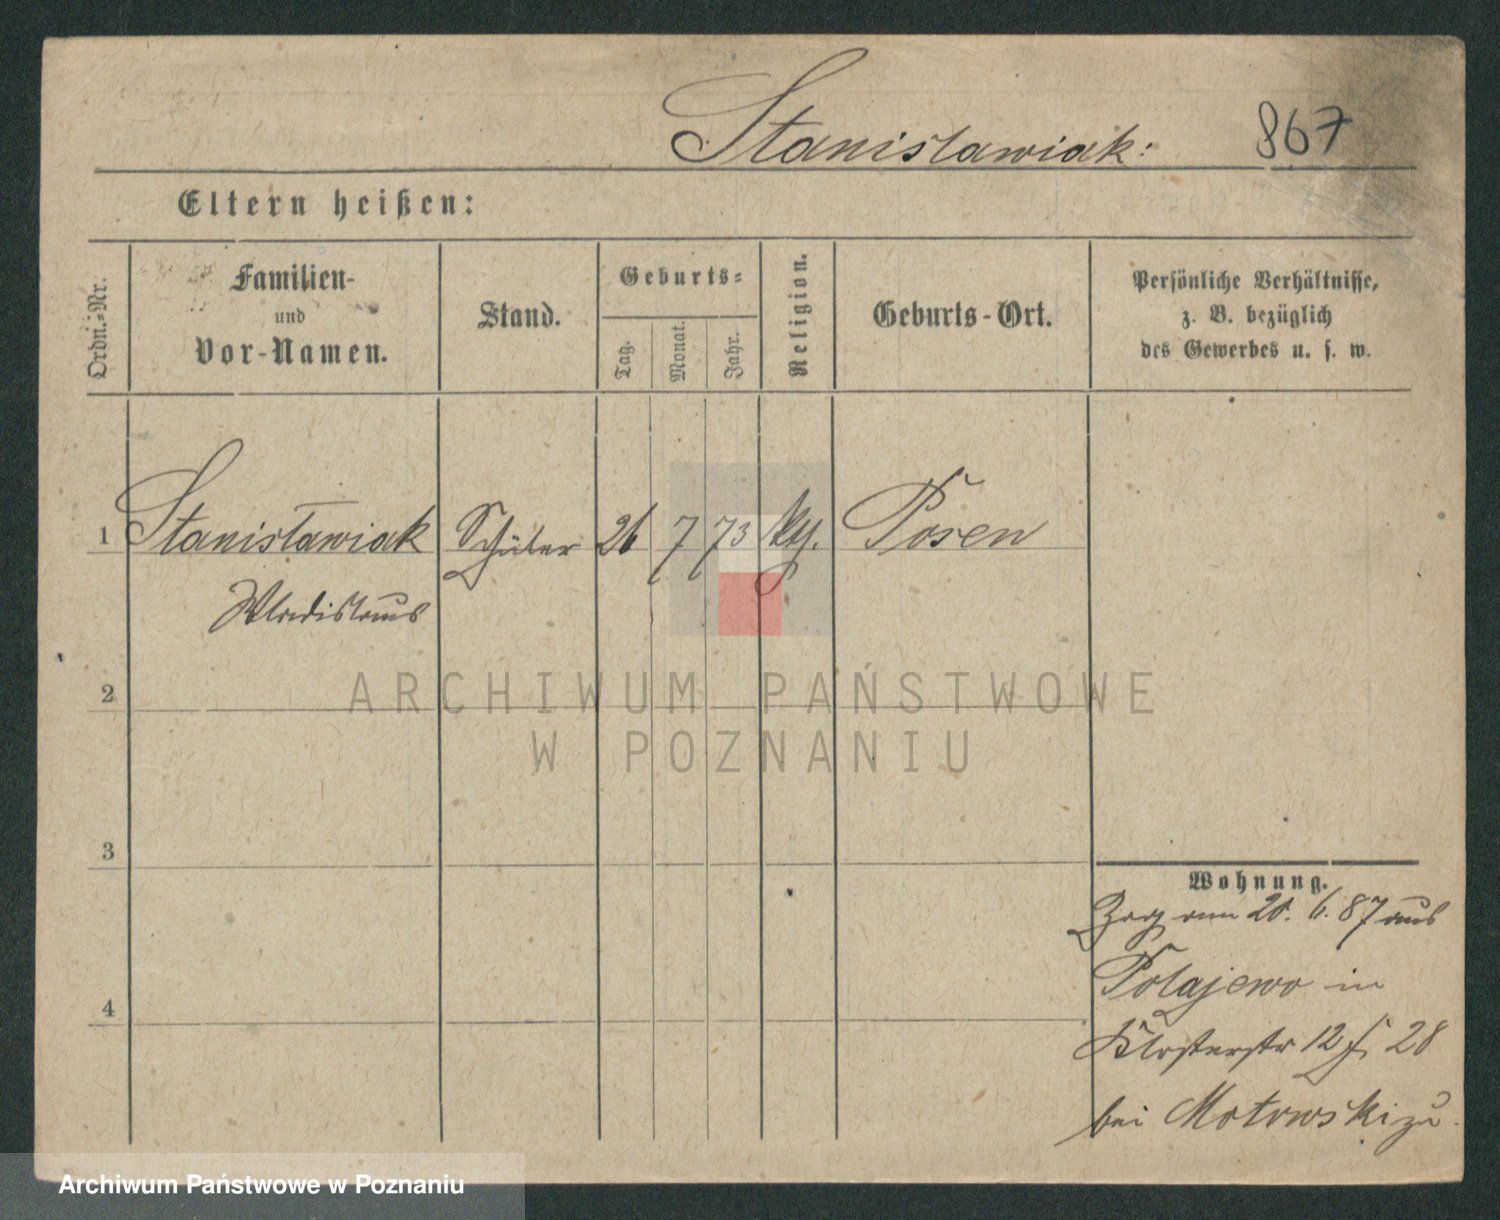 Stanislawiak:
867
Eltern heißen:
Ordn.-Nr.
Familien-
und
Vor-Namen.
Stand.
Geburts-
Tag.
Monat.
Jahr.
Religion.
Geburts-Ort.
Persönliche Verhältnisse,
z. B. bezüglich
des Gewerbes u. s. w.
1 Stanisławiak Schüler 26 7 73 Posen
Wladislaus
2
3
4
Wohnung.
Zog am 20. 6. 87 aus
Polajewo in
Klosterstr 12 28
bei Motowski zu.
ARCHIWUM PAŃSTWOWE
W POZNANIU
Archiwum Państwowe w Poznaniu